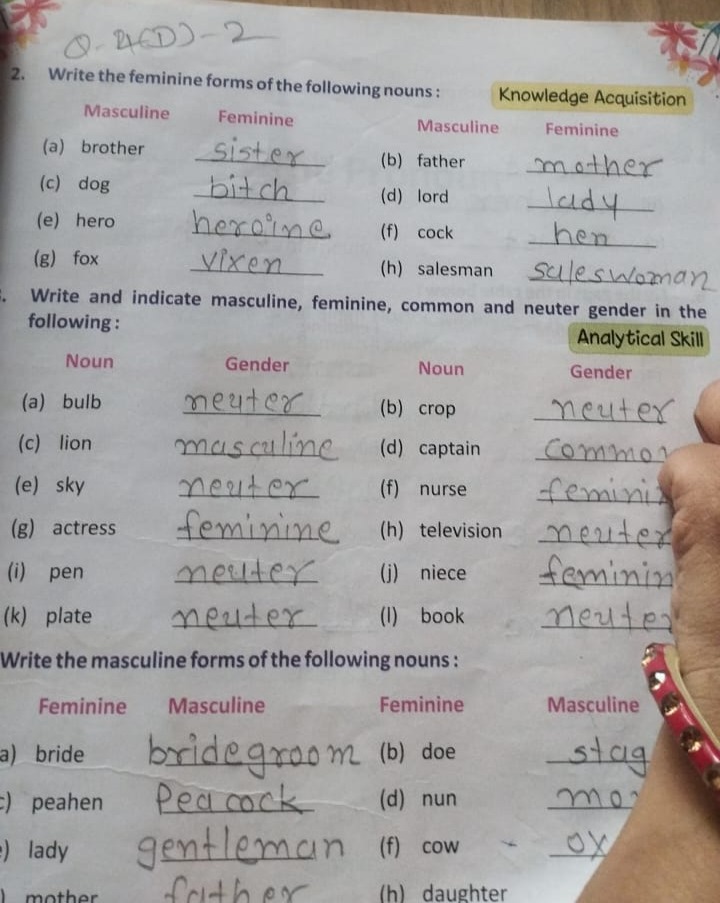 Q. 4(D)-2
2. Write the feminine forms of the following nouns :
Knowledge Acquisition
Masculine Feminine Masculine Feminine
(a) brother sister (b) father mother
(c) dog bitch (d) lord lady
(e) hero heroine (f) cock hen
(g) fox vixen (h) salesman saleswoman
. Write and indicate masculine, feminine, common and neuter gender in the
following :
Analytical Skill
Noun Gender Noun Gender
(a) bulb neuter (b) crop neuter
(c) lion masculine (d) captain common
(e) sky neuter (f) nurse feminin
(g) actress feminine (h) television neuter
(i) pen neuter (j) niece feminin
(k) plate neuter (l) book neuter
Write the masculine forms of the following nouns :
Feminine Masculine Feminine Masculine
a) bride bridegroom (b) doe stag
c) peahen Peacock (d) nun mo
e) lady gentleman (f) cow - ox
) mother father (h) daughter